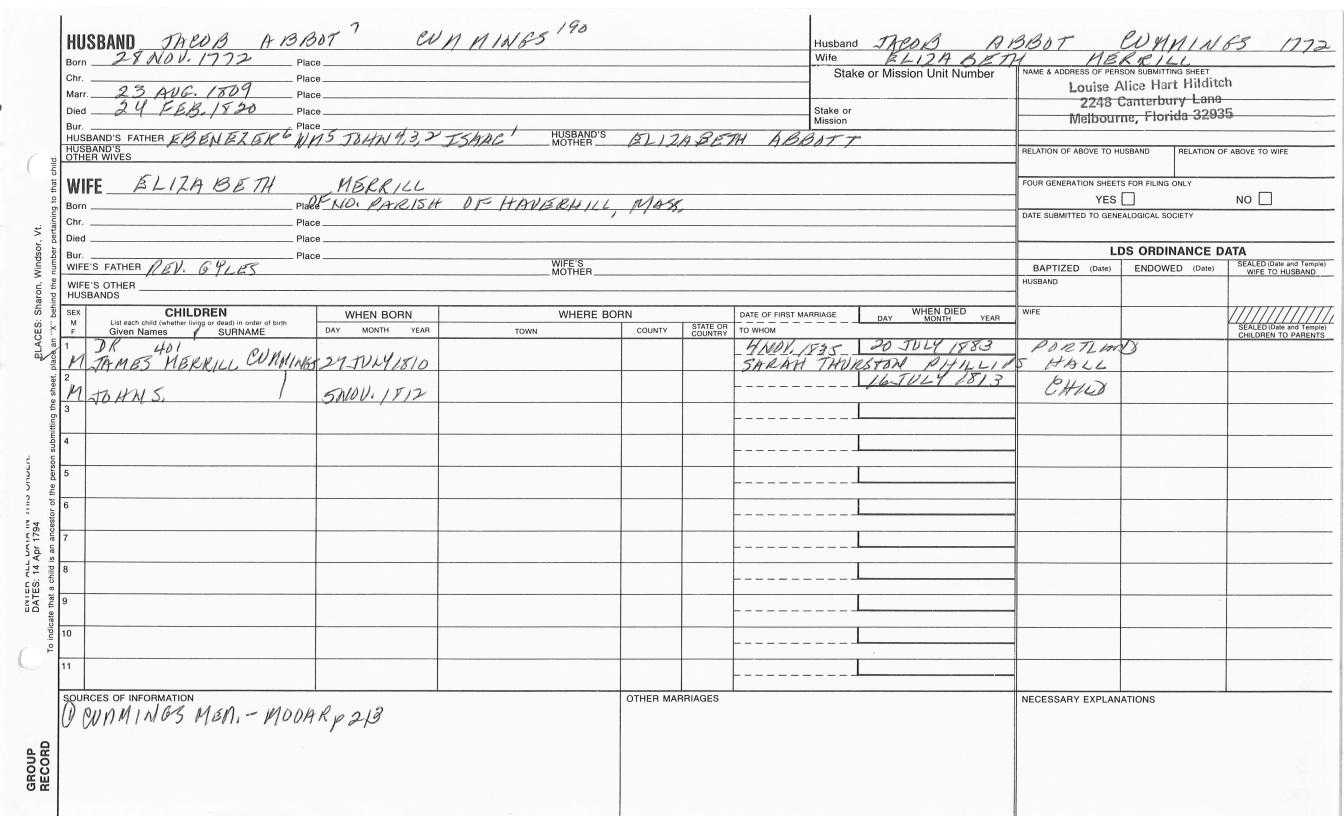 HUSBAND JACOB ABBOT 7 CUMMINGS 190
Born 28 NOV. 1772 Place
Chr. Place
Marr. 23 AUG. 1809 Place
Died 24 FEB. 1820 Place
Bur. Place
HUSBAND'S FATHER EBENEZER 6 WM 5 JOHN 4,3,2 ISAAC 1 HUSBAND'S MOTHER ELIZABETH ABBOTT
HUSBAND'S OTHER WIVES
Husband JACOB ABBOT CUMMINGS 1772
Wife ELIZABETH MERRILL
Stake or Mission Unit Number
Stake or Mission
NAME & ADDRESS OF PERSON SUBMITTING SHEET
Louise Alice Hart Hilditch
2248 Canterbury Lane
Melbourne, Florida 32935
RELATION OF ABOVE TO HUSBAND RELATION OF ABOVE TO WIFE
FOUR GENERATION SHEETS FOR FILING ONLY
YES NO
DATE SUBMITTED TO GENEALOGICAL SOCIETY
WIFE ELIZABETH MERRILL
Born Place OF NO. PARISH OF HAVERHILL, MASS.
Chr. Place
Died Place
Bur. Place
WIFE'S FATHER REV. GYLES WIFE'S MOTHER
WIFE'S OTHER HUSBANDS
LDS ORDINANCE DATA
BAPTIZED (Date) ENDOWED (Date) SEALED (Date and Temple) WIFE TO HUSBAND
HUSBAND
WIFE
SEALED (Date and Temple) CHILDREN TO PARENTS
SEX M F
CHILDREN
List each child (whether living or dead) in order of birth
Given Names SURNAME
WHEN BORN
DAY MONTH YEAR
WHERE BORN
TOWN COUNTY STATE OR COUNTRY
DATE OF FIRST MARRIAGE
TO WHOM
WHEN DIED
DAY MONTH YEAR
1 DR 401 4 NOV. 1835 20 JULY 1883 PORTLAND
M JAMES MERRILL CUMMINGS 27 JULY 1810 SARAH THURSTON PHILLIPS HALL
2 16 JULY 1813
M JOHN S. 5 NOV. 1812 CHILD
3
4
5
6
7
8
9
10
11
SOURCES OF INFORMATION
① CUMMINGS MEM. - MOOAR p 213
OTHER MARRIAGES
NECESSARY EXPLANATIONS
PLACES: Sharon, Windsor, Vt.
DATES: 14 Apr 1794
To indicate that a child is an ancestor of the person submitting the sheet, place an "X" behind the number pertaining to that child.
GROUP RECORD